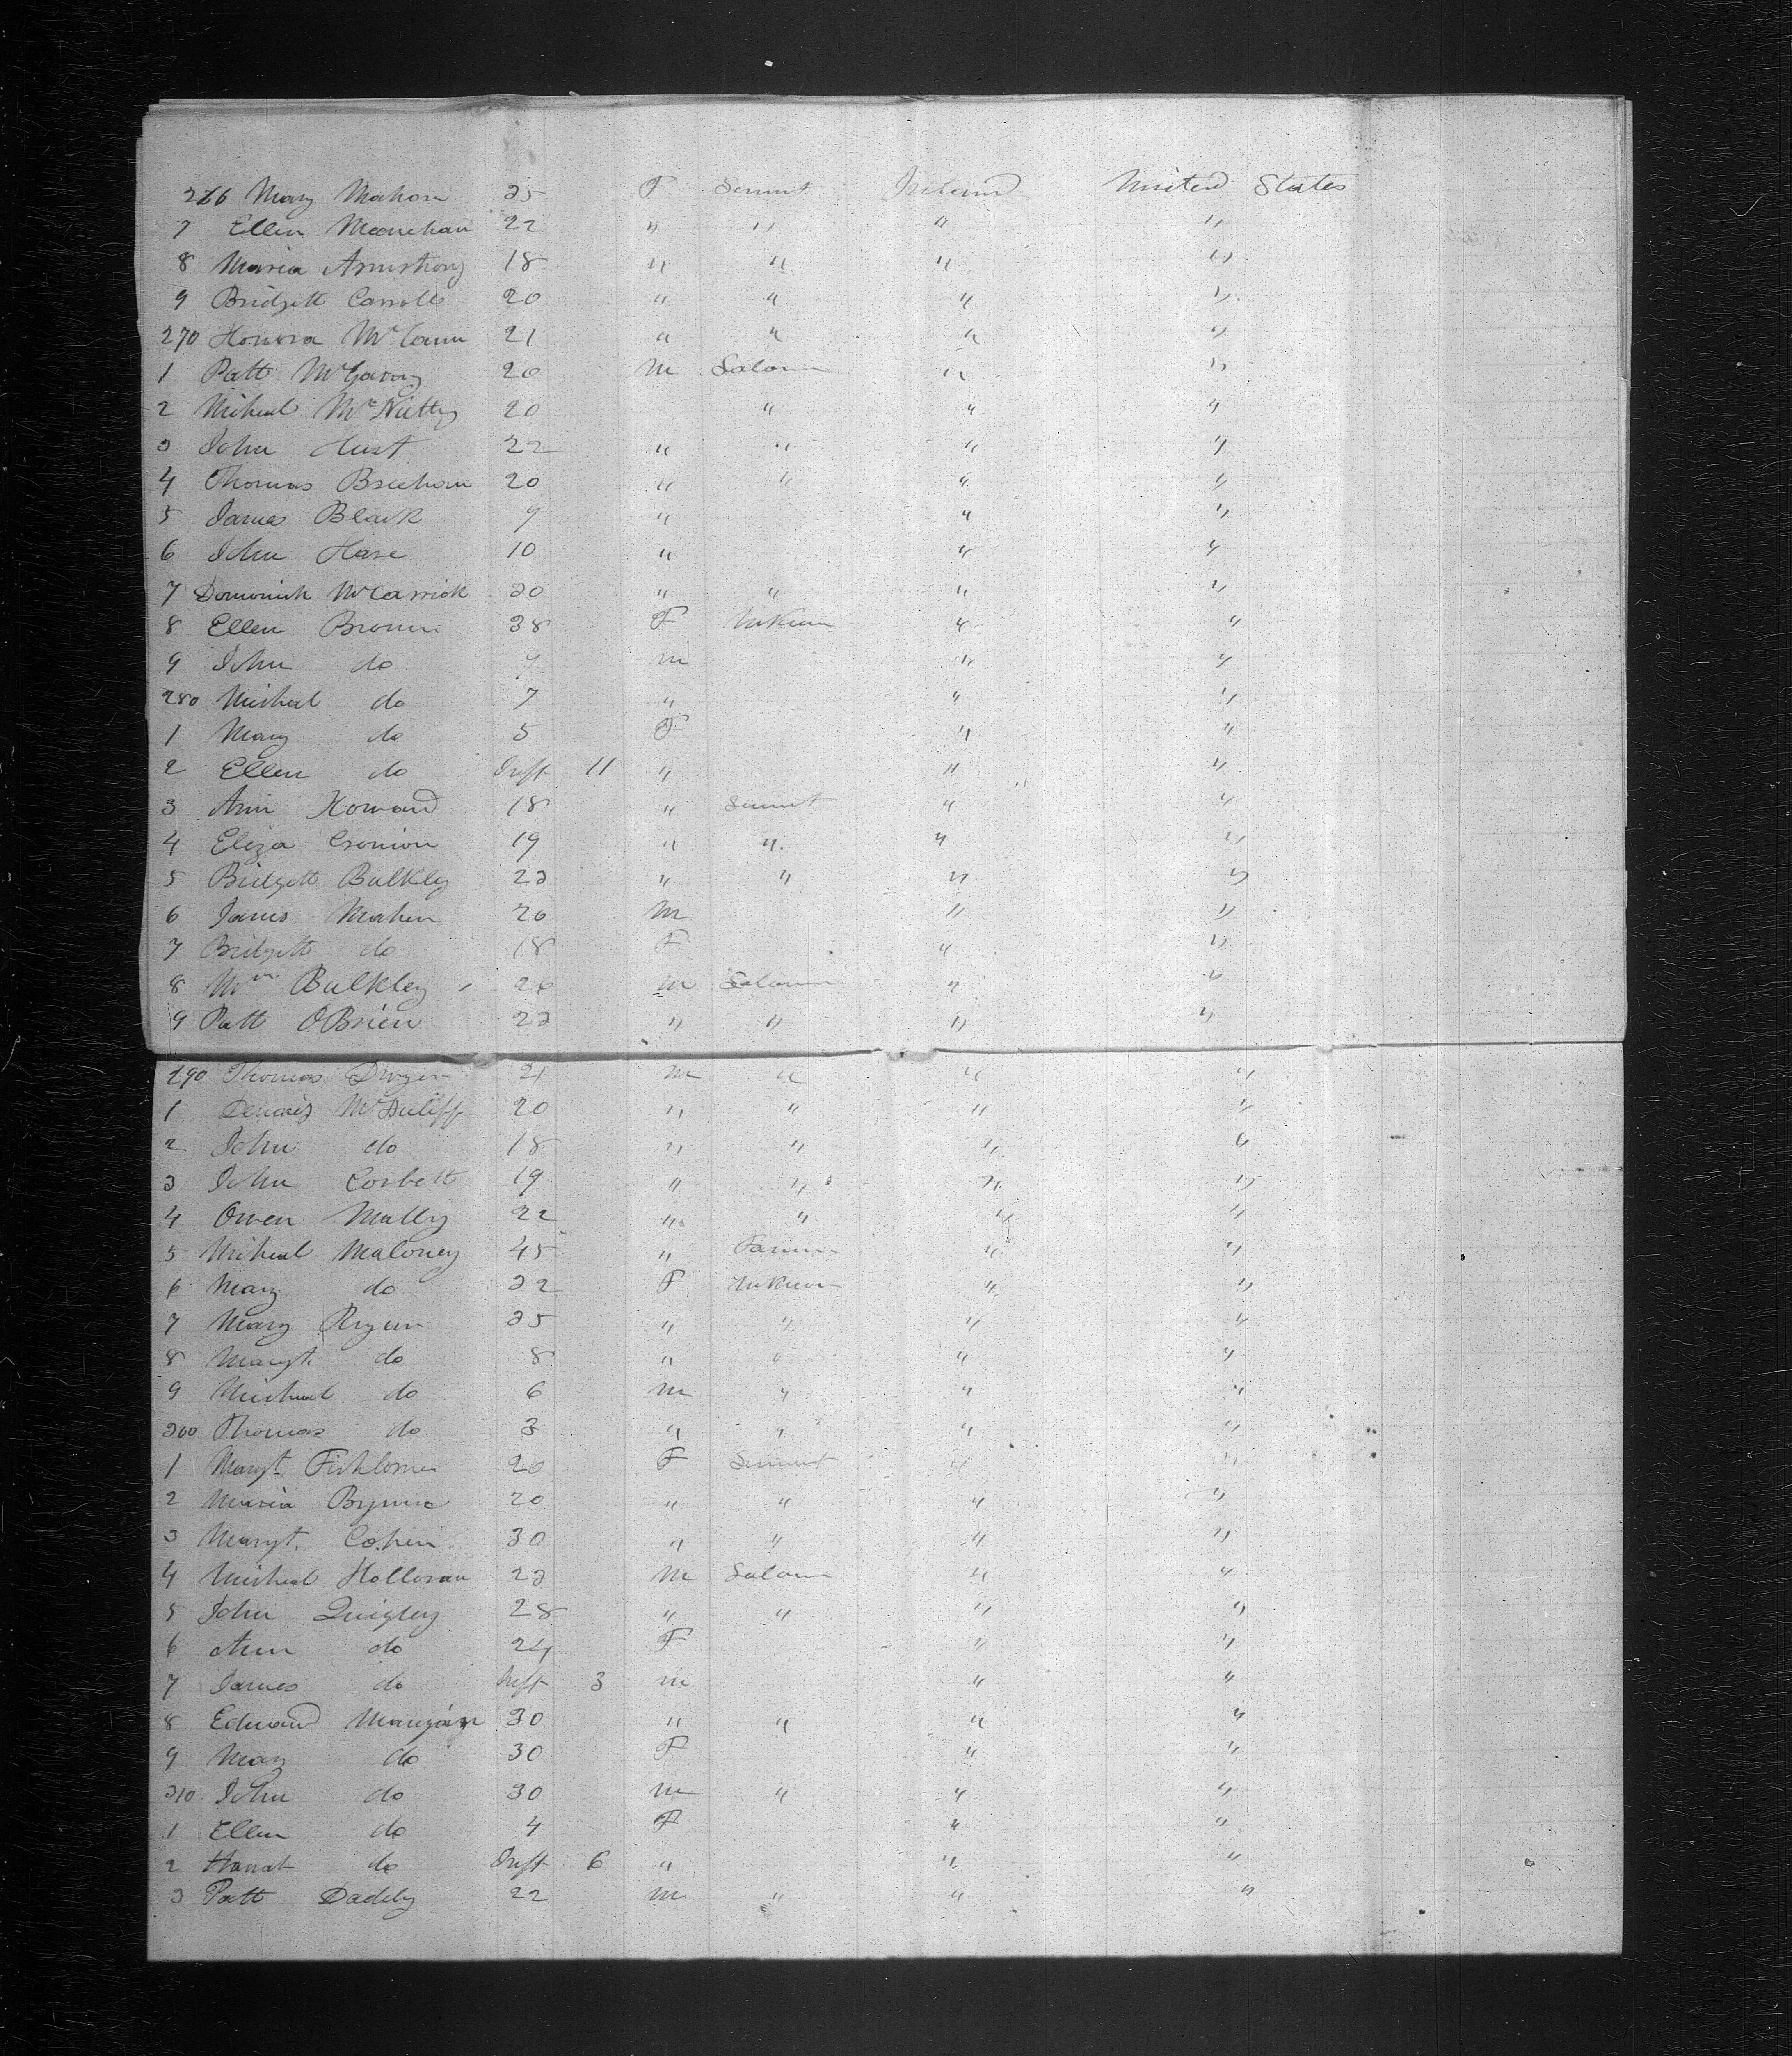 266 Mary Mahon 25 F Servnt Ireland United States
7 Ellen Meenehan 22 " " " "
8 Maria Armstrong 18 " " " "
9 Bridgett Carroll 20 " " " "
270 Honora McCann 21 " " " "
1 Patt McGarry 20 M Labour " "
2 Micheal McNulty 20 " " "
3 John Hust 22 " " " "
4 Thomas 20 " " " "
5 James Black 9 " " "
6 John Hare 10 " " "
7 Domonick McCarrick 20 " " " "
8 Ellen Brown 38 F " "
9 John do 9 M " "
280 Micheal do 7 " " "
1 Mary do 5 F " "
2 Ellen do Inft 11 " " "
3 Ann Howard 18 " Servnt " "
4 Eliza Cronion 19 " " " "
5 Bridgett Bulkley 23 " " " "
6 James Mahen 26 M " "
7 Bridgett do 18 F " "
8 Wm Bulkley 26 M Labour " "
9 Patt OBrien 23 " " " "
290 Thomas Dwyer 21 M " " "
1 Dennis McAuliff 20 " " " "
2 John do 18 " " " "
3 John Corbett 19 " " " "
4 Owen Mally 22 " " " "
5 Micheal Maloney 45 " Farmer " "
6 Mary do 22 F " "
7 Mary Ryan 35 " " " "
8 Margt. do 8 " " " "
9 Micheal do 6 M " " "
300 Thomas do 3 " " " "
1 Margt. 20 F Servnt " "
2 Maria Byrne 20 " " " "
3 Margt. Cohen 30 " " " "
4 Micheal Holloran 23 M Labour " "
5 John Quigley 28 " " " "
6 Ann do 24 F " "
7 James do Inft 3 M " "
8 Edward Mangan 30 " " " "
9 Mary do 30 F " "
310 John do 30 M " " "
1 Ellen do 4 F " "
2 Hanah do Inft 6 " " "
3 Patt Daddy 22 M " " "